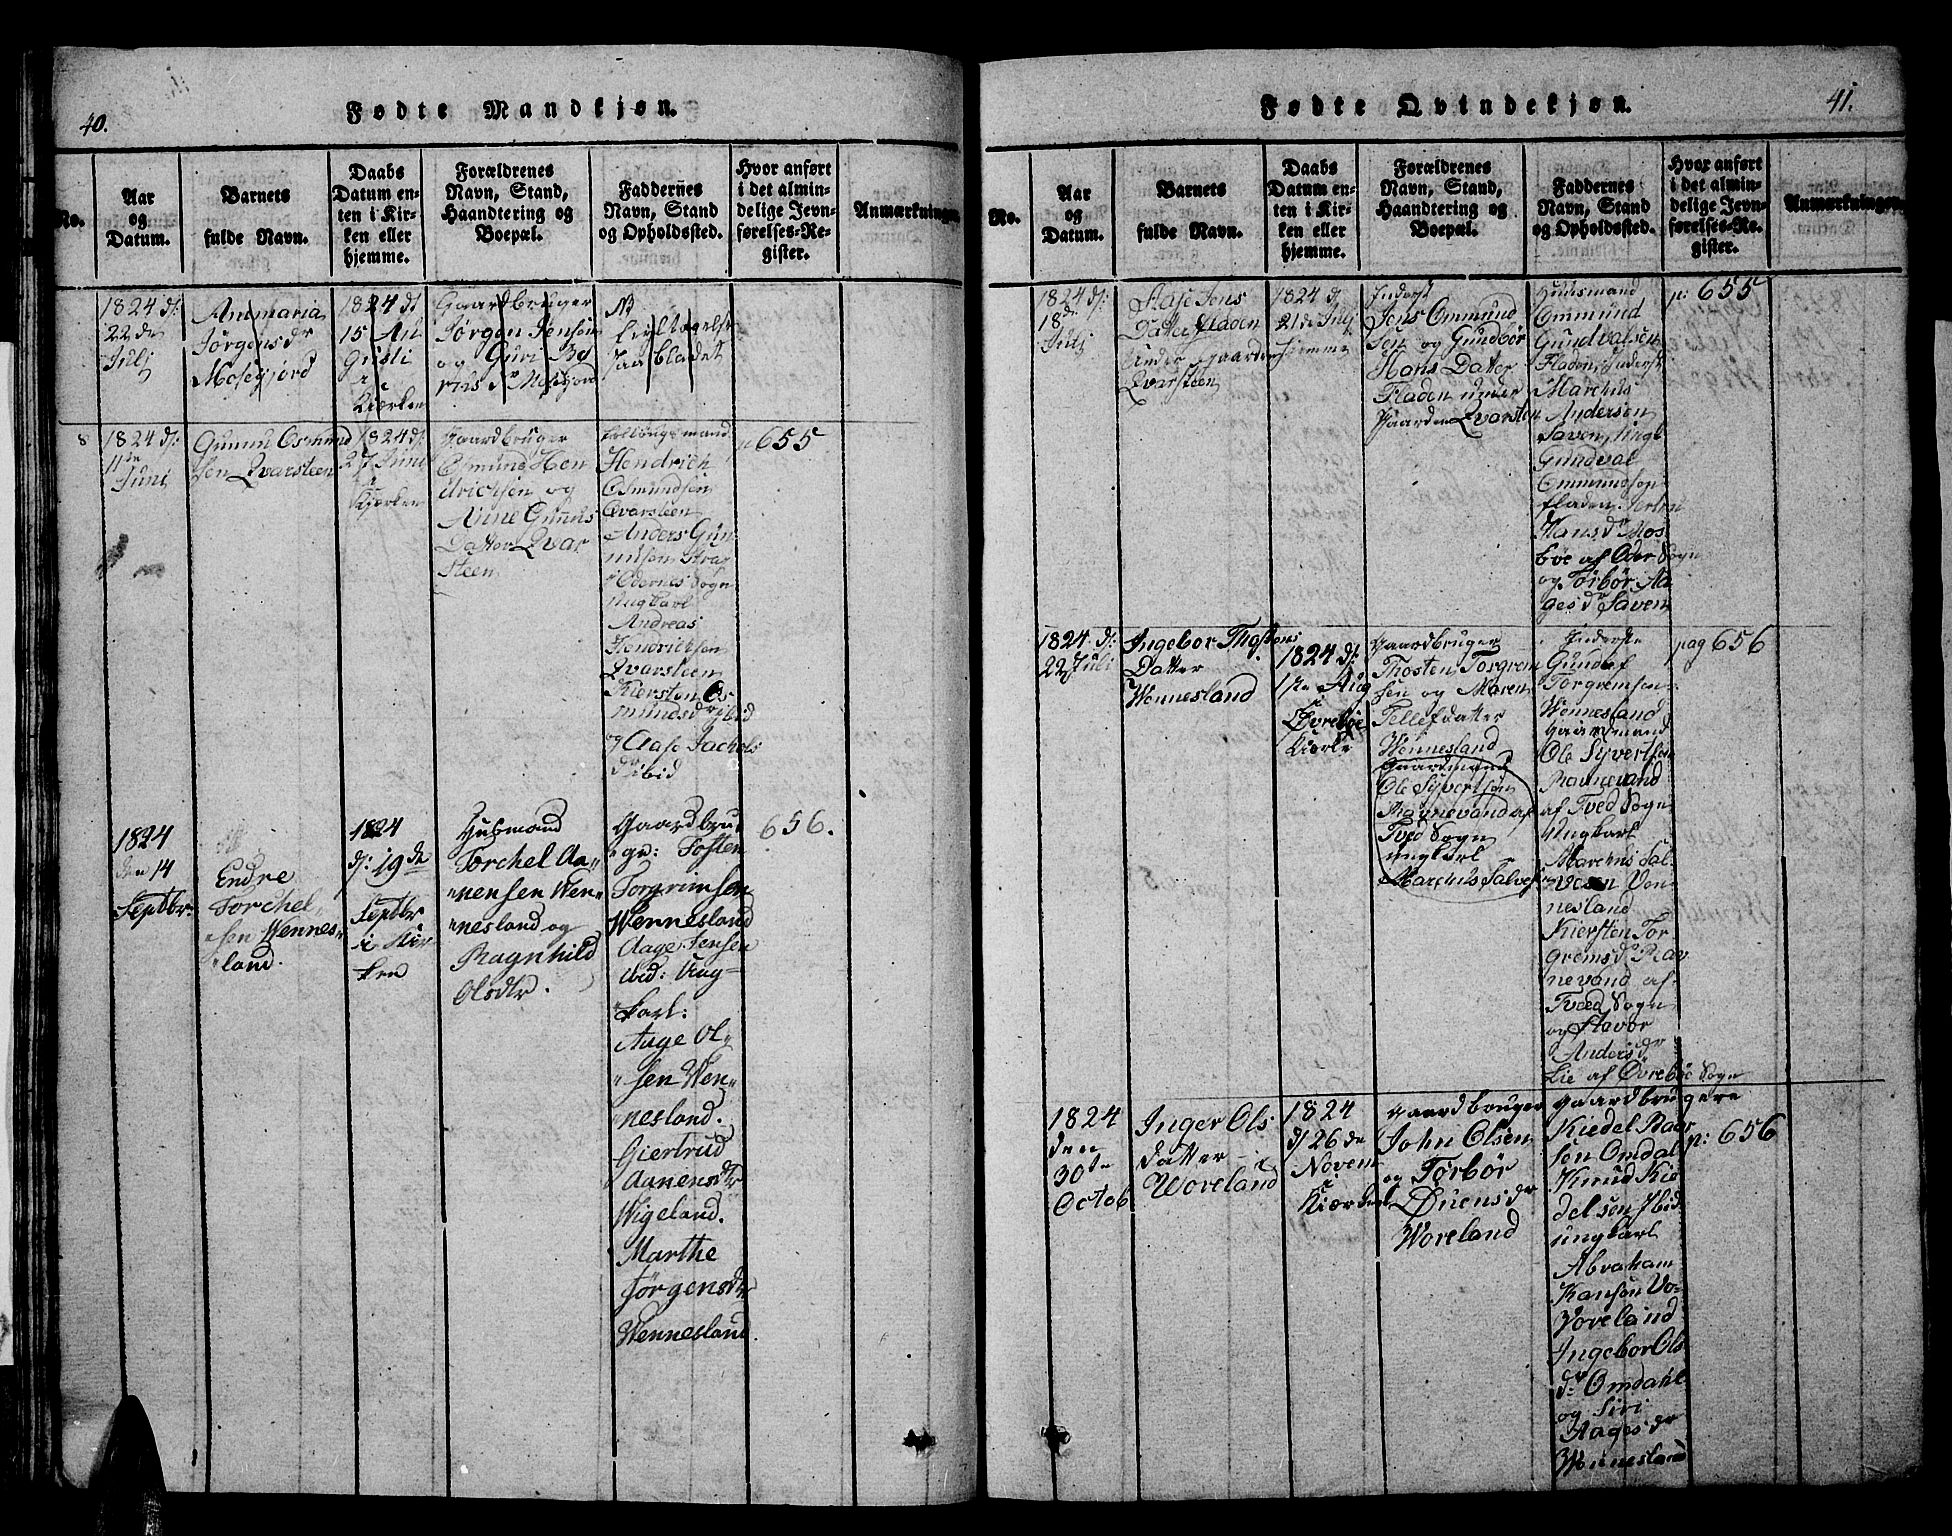 40.
Fødte Mandkjøn.
No.
Aar
og
Datum.
Barnets
fulde Navn.
Daabs
Datum en-
ten i Kir-
ken eller
hjemme.
Forældrenes
Navn, Stand,
Haandtering og
Boepæl.
Faddernes
Navn, Stand
og Opholdssted.
Hvor anført
i det almin-
delige Jevn-
førelses-Re-
gister.
Anmærkninger.
1824 d:
22de
Julj
Annmaria
Jørgensdr
Mosefjord
1824 d:
15 Au
gusti
i
Kiærken
Gaardbruger
Jørgen Jensen
og Guri
Mosefjord
NB
bladet
8
1824 d:
11te
Juni
Gunnu Osmund
sen Qvarsteen
1824 d:
27 Juni
i
Kiærken
Gaardbruger
Osmund Hen
drichsen og
Anne Gunnus
Datter Qvar
steen
p 655
Hendrich
Osmundsen
Qvarsteen
Anders Gun
nusen
Odernes Sogn
ungkarl
Andreas
Hendrichsen
Qvarsteen
Kiersten Os
mundsdr ibid
og Aase Jachobs
dr ibid
1824
den 14
Septbr:
Endre
Torchel-
sen Wennes-
land.
1824
d: 19de
Septbr
i Kir-
ken
Husmand
Torchel Aa-
nensen Wen-
nesland og
Ragnhild
Olsdtr.
Gaardbru-
ger: Tosten
Torgrimsen
Wennesland
Aage Jensen
ibid: Ung-
karl:
Aage Ol-
sen Wen-
nesland.
Giertrud
Aanensdtr
Wigeland.
Marthe
Jørgensdtr
Wennesland.
656.
Fødte Qvindekjøn.
41.
No.
Aar
og
Datum.
Barnets
fulde Navn.
Daabs
Datum en-
ten i Kir-
ken eller
hjemme.
Forældrenes
Navn, Stand,
Haandtering og
Boepæl.
Faddernes
Navn, Stand
og Opholdssted.
Hvor anført
i det almin-
delige Jevn-
førelses-Re-
gister.
Anmærkninger.
1824 d:
18de
Julj
Aase Jens
Datter Fladen
under gaarden
Qvarsteen
1824 d
21de Julj
hjemme
Inderst
Jens Ommund
sen og Gundbør
Hans Datter
Fladen under
Gaarden Qvarsten
Huusmand
Ommund
Gundvalsen
Fladen, Inderst
Marchus
Andersen
Saven, ungk
Gundval
Ommundsen
fladen.
Hansdr Mos
bøe af Oder Sogn
og Torbør Aa
gesdr Saven
p: 655
1824 d:
22 Juli
Ingebor Thostens
Datter
Wennesland
1824 d:
1te Aug
i
Øvrebøe
Kiærke
Gaardbruger
Thosten Torgrem
sen og Maren
Tellefdatter
Wennesland
Gaardmand
Ole Syvertsen
Ragnevand af
Tved Sogn
ungkarl
Marchus Salves
Inderste
Gunduf
Torgremsen
Wennesland
Gaardmand
Ole Syvertsen
Ravnevand
af Tved Sogn
Ungkarl
Marchus Sal-
vesen Ven-
nesland
Kiersten Tor
gremsdr Rav
nevand af
Tved Sogn
og Stavør
Andersdr
Lie af Øvrebøe Sogn
pag 656
1824
den
30te
Octob
Inger Ols
datter
Woreland
1824
d/26 de
Novem
i
Kiærken
Gaardbruger
John Olsen
og Torbør
Ønensdr
Woreland
gaardbrugere
Kiedel Baar
sen Omdal
Knud Kie
delsen Ibid
ungkarl
Abraham
Hansen Vo-
Voreland
Ingebor Ols
dr Omdahl
og Siri
Aagesdr
Wennesland
p: 656